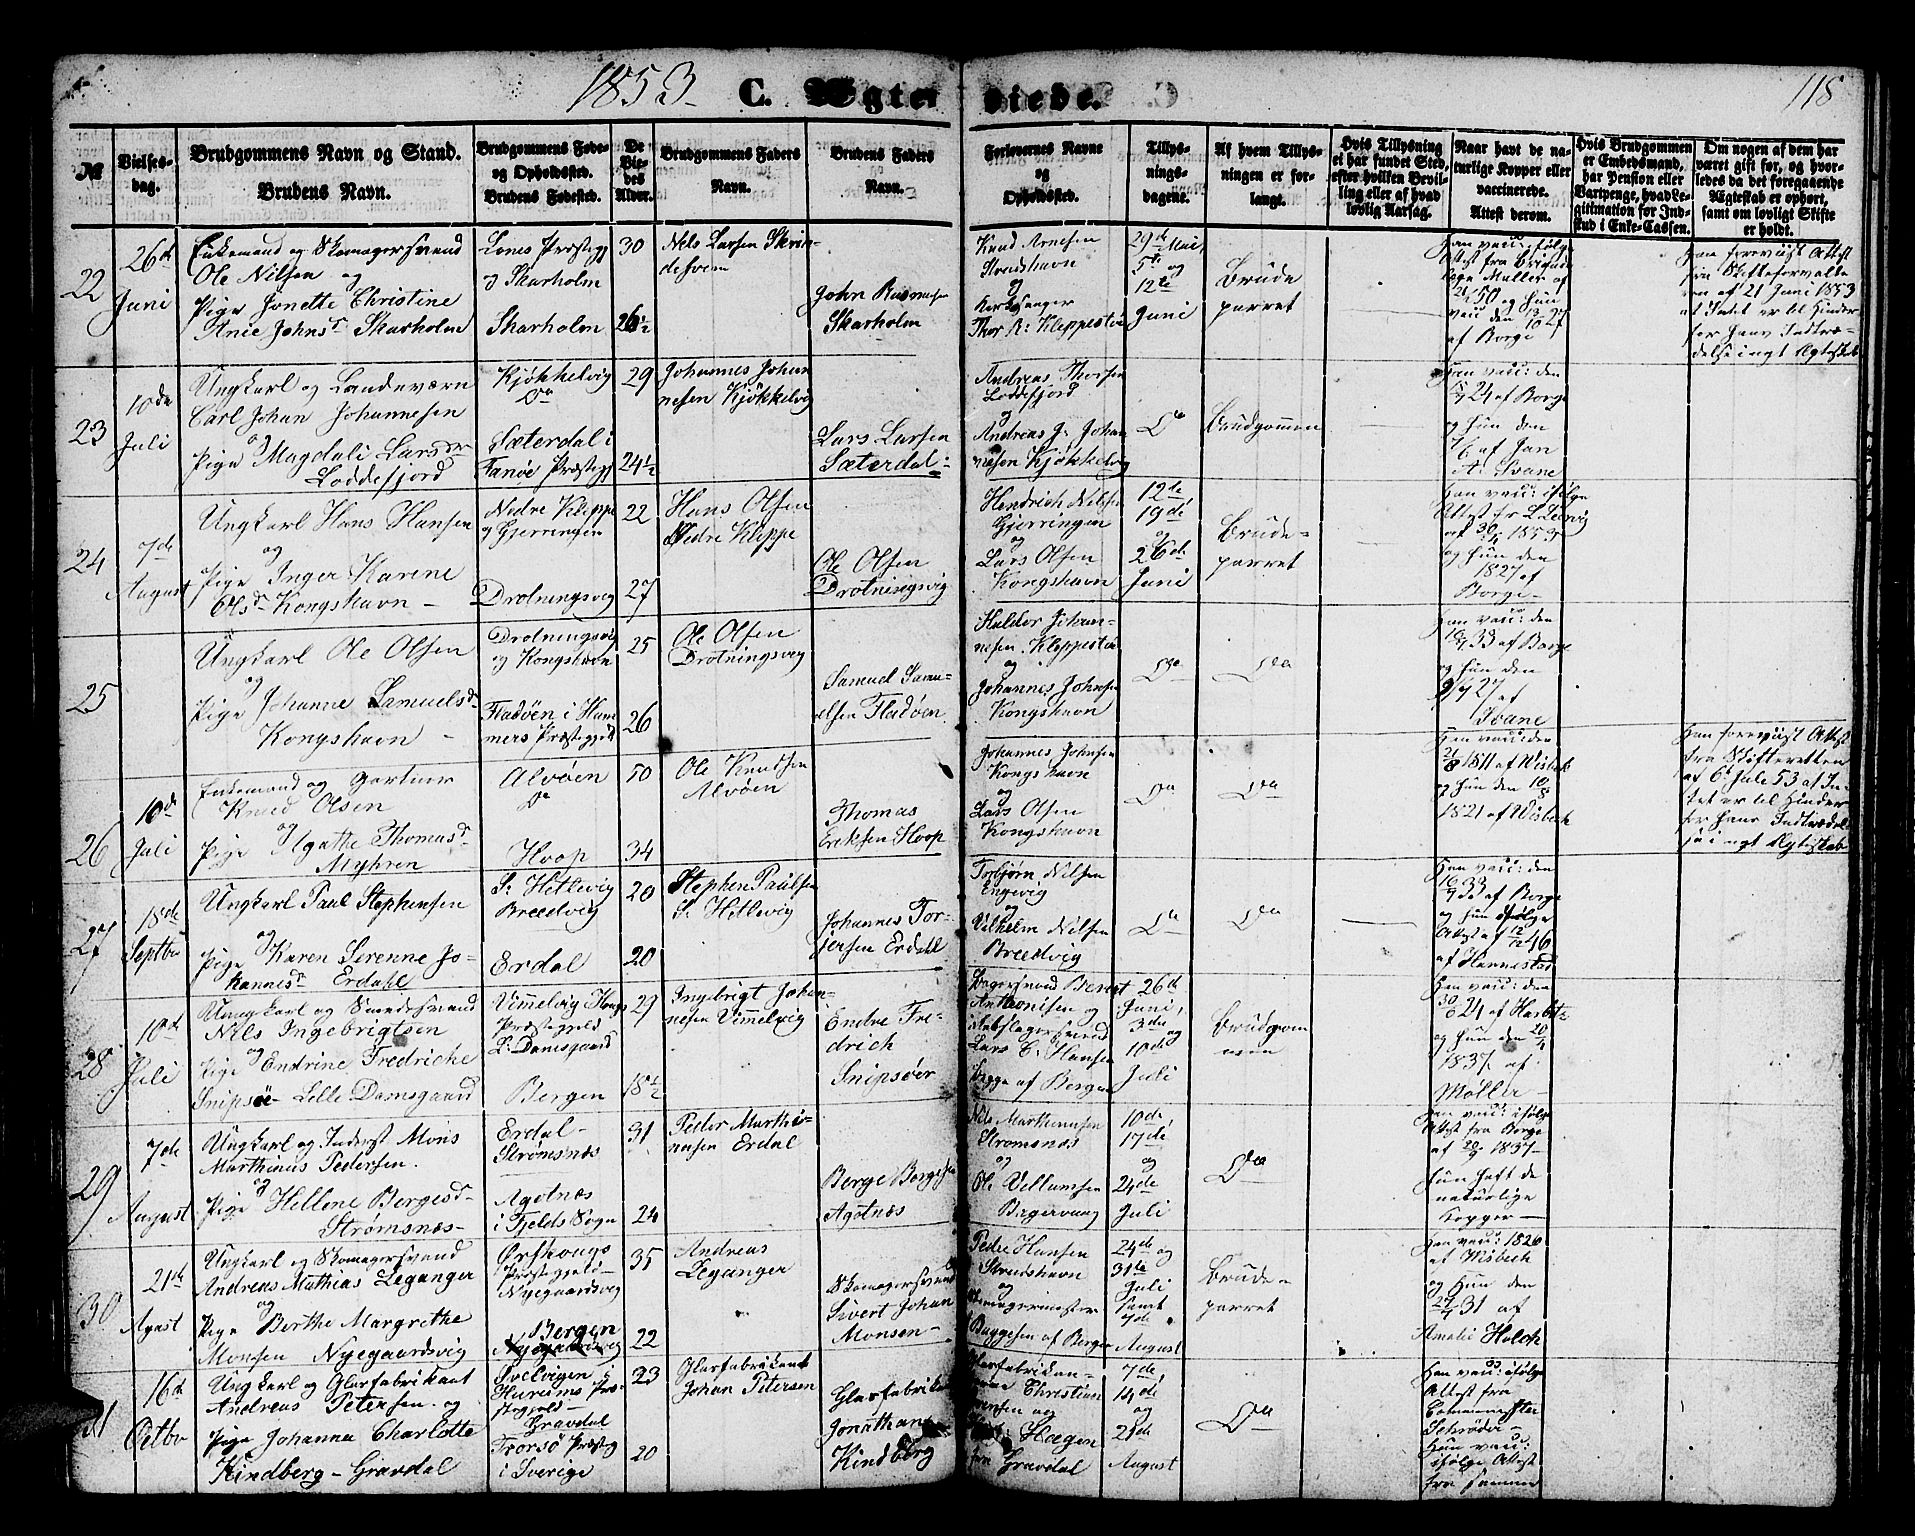 1853. C. Ægteviede. 118
No
Vielses-dag.
Brudgommens Navn og Stand.
Brudens Navn.
Brudgommens Føde- og Opholdssted.
Brudens Fødested.
De Viedes Alder.
Brudgommens Faders Navn.
Brudens Faders Navn.
Forlovernes Navne og Opholdssted.
Tillysningsdagene.
Af hvem Tillysningen er forlangt.
Hvis Tillysning ei har fundet Sted, efter hvilken Bevilling eller af hvad lovlig Aarsag.
Naar havt de naturlige Kopper eller vaccinerede. Attest derom.
Hvis Brudgommen er Embedsmand, har Pension eller Vartpenge, hvad Legitimation for Indskud i Enke-Cassen.
Om nogen af dem har været gift før, og hvorledes da det foregaaende Ægteskab er ophørt, samt om lovligt Skifte er holdt.
22
26d Juni
Enkemand og Skomagersvend
Ole Nilsen og
Pige Jonette Christine
Anie Johnsdr Skarholm
Lones Præstegj
og Skarholm
Skarholm
30
26½
Nels Larsen Skrin-
desvem
John Rasmusen
Skarholm
Knud Arnesen
Strudshavn
og
Kirkesanger
Thor R: Kleppestø
29de Mai,
5te og
12te
Juni
Brude
parret
Han vacc: ifølge
Attest fra Brigade
læge Muller af
og hun
vacc den
af Borge
Han foreviist Attest
fra Skifteforvalte
ren af 21 Juni 1853
at Intet er til Hinder
for hans Indtræ-
delse i nyt Ægteskab
23
10de Juli
Ungkarl og Landeværn
Carl Johan Johannesen
og
Pige Magdali Larsdr
Loddefjord
Kjøkkelvig
Do
Sæterdal i
Fanøe Præstegj
29
24½
Johannes Johan
nesen Kjøkkelvig
Lars Larsen
Sæterdal
Andreas Thorsen
Loddefjord
og
Andreas J: Johan
nesen Kjøkkelvig
Do
Brudgommen
Han vacc: den
24 af Borge
og hun den
af Jan
A. Svane
24
7de August
Ungkarl Hans Hansen
og
Pige Inger Karine
Olsdr Kongshavn
Nedre Kleppe
og Gjerringen
Drotningsvig
22
27
Hans Olsen
Nedre Kleppe
Ole Olsen
Drotningsvig
Hendrich Nilsen
Gjerringen
og
Lars Olsen
Kongshavn
12te,
19de
og
26de
Juni
Brude-
parret
Han vacc: ifølge
Attest fr L. Ledvig
af 30/4 1853
og hun den
1827 af
Borge
25
Ungkarl Ole Olsen
og
Pige Johanne Samuelsdr
Kongshavn
Drotningsvig
og Kongshavn
Fladøen i Ham
mers Præstegjeld
25
26
Ole Olsen
Drotningsvig
Samuel Samu-
elsen Fladøen
Haldor Johan-
nesen Kleppestø
og
Johannes Johnsen
Kongshavn
Do
Do
Han vacc: den
33 af Borge
og hun den
27 af
Svane
26
10de Juli
Enkemand og Gartner
Knud Olsen
og
Pige Agathe Thomasdr
Myhren
Alvøen
Do
Hoop
50
34
Ole Knudsen
Alvøen
Thomas
Eriksen Hoop
Johannes Johnsen
Kongshavn
og
Lars Olsen
Kongshavn
Do
Do
Han vacc: den
1811 af Wisbek
og hun den
1821 af Wisbech
Han foreviist Attest
fra Skifteretten
af 6 Juli 53 at In-
tet er til Hinder
for hans Indtrædel
se i nyt Ægteskab
27
18de Septbr
Ungkarl Paul Stephensen
og
Pige Karen Serenne Jo-
hannesdr Erdahl
S: Hetlevig
Bredvig
Erdal
20
20
Stephen Paulsen
S: Hetlevig
Johannes Tor-
jersen Erdahl
Torbjørn Nilsen
Engevig
og
Vilhelm Nilsen
Bredvig
Do
Do
Han vacc: den
33 af Borge
og hun ifølge
Attest af
af Hannestad
28
10de Juli
Ungkarl og Smedesvend
Nils Ingebrigtsen
og
Pige Endrine Fredriche
Snipsøe Lille Damsgaard
Vimmelvig Houg
Præstegjeld
L: Damsgaard
Bergen
29
18½
Ingebrigt Johan-
nesen Vimmelvig
Endre Fre-
drich
Snipsøer
Bagersvend Berent
Anthonisen og
Rebslagersvend
Lars C: Hansen
begge af Bergen
26de
Juni,
3die og
10de
Juli
Brudgom
men
Han vacc: den
30/6 24 af Harbitz
og hun den
1837 af
Møller
29
7de August
Ungkarl og Inderst Mons
Marthinus Pedersen
og
Pige Hellene Bergesdr
Strømsnæs
Erdal
Strømsnæs
Agotnæs
i Fjelds Sogn
31
24
Peder Marthi-
nusen Erdal
Berge Bergesen
Agotnæs
Nils Marthinusen
Strømsnæs
og
Ole Vellumsen
10de
17de
og
24de
Juli
Do
Han vacc: ifølge
Attest fra Borge
af 1837
Hun haft de
naturlige
Kopper
30
21de Agust
Ungkarl og Skomagersvend
Andreas Mathias Leganger
og
Pige Berthe Margrethe
Monsen Nyegaardsvig
Ørskougs
Præstegjeld
Nyegaardsvig
Bergen
Nyegaardsvig
35
22
Andreas
Leganger
Skomagersvend
Sivert Johan
Monsen
Peder Hansen
Strudshavn
og
Skomagermester
Baggesen af Bergen
24de og
31te
Juli
samt
7de
August
Brude-
parret
Han vacc: 1826
af Wisbech
og hun den
31 af
Amalie Holck
31
16d Octbr
Ungkarl og Glasfabrikant
Andreas Petersen og
Pige Johanna Charlotte
Kindberg Gravdal
Svelvigen i
Hurums Præ-
stegjeld
Gravdal
Trorsø Præstegj
i Sverige
23
20
Glasfabrikant
Johan Petersen
Glasfabrikan
Jonathan
Kindberg
Glasfabrikan-
terne Christian
Jensen og
Hagen
fra Gravdal
7de,
14de
og
21de
August
Do
Han vacc: ifølge
Attest fra
Schrøder
Hun vacc:
ifølge Attest
fra samme